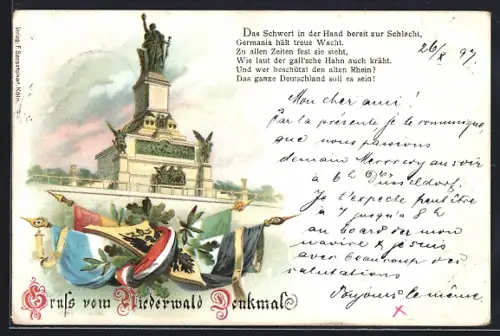 Verlag F. Sonntag, Köln.
Das Schwert in der Hand bereit zur Schlacht,
Germania hält treue Wacht.
Zu allen Zeiten fest sie steht,
Wie laut der gall'sche Hahn auch kräht.
Und wer beschützt den alten Rhein?
Das ganze Deutschland soll es sein!
26/X 97
Mon cher ami!
Par la présente, je te communique,
que nous passons
demain Mercredi au soir
à 6h Düsseldorf.
Je t'expecte peut être
à 7 jusqu'à 8h
au board de mon
navire & je suis
avec beaucoup des
salutations
Toujours le même
Gruss vom Niederwald Denkmal